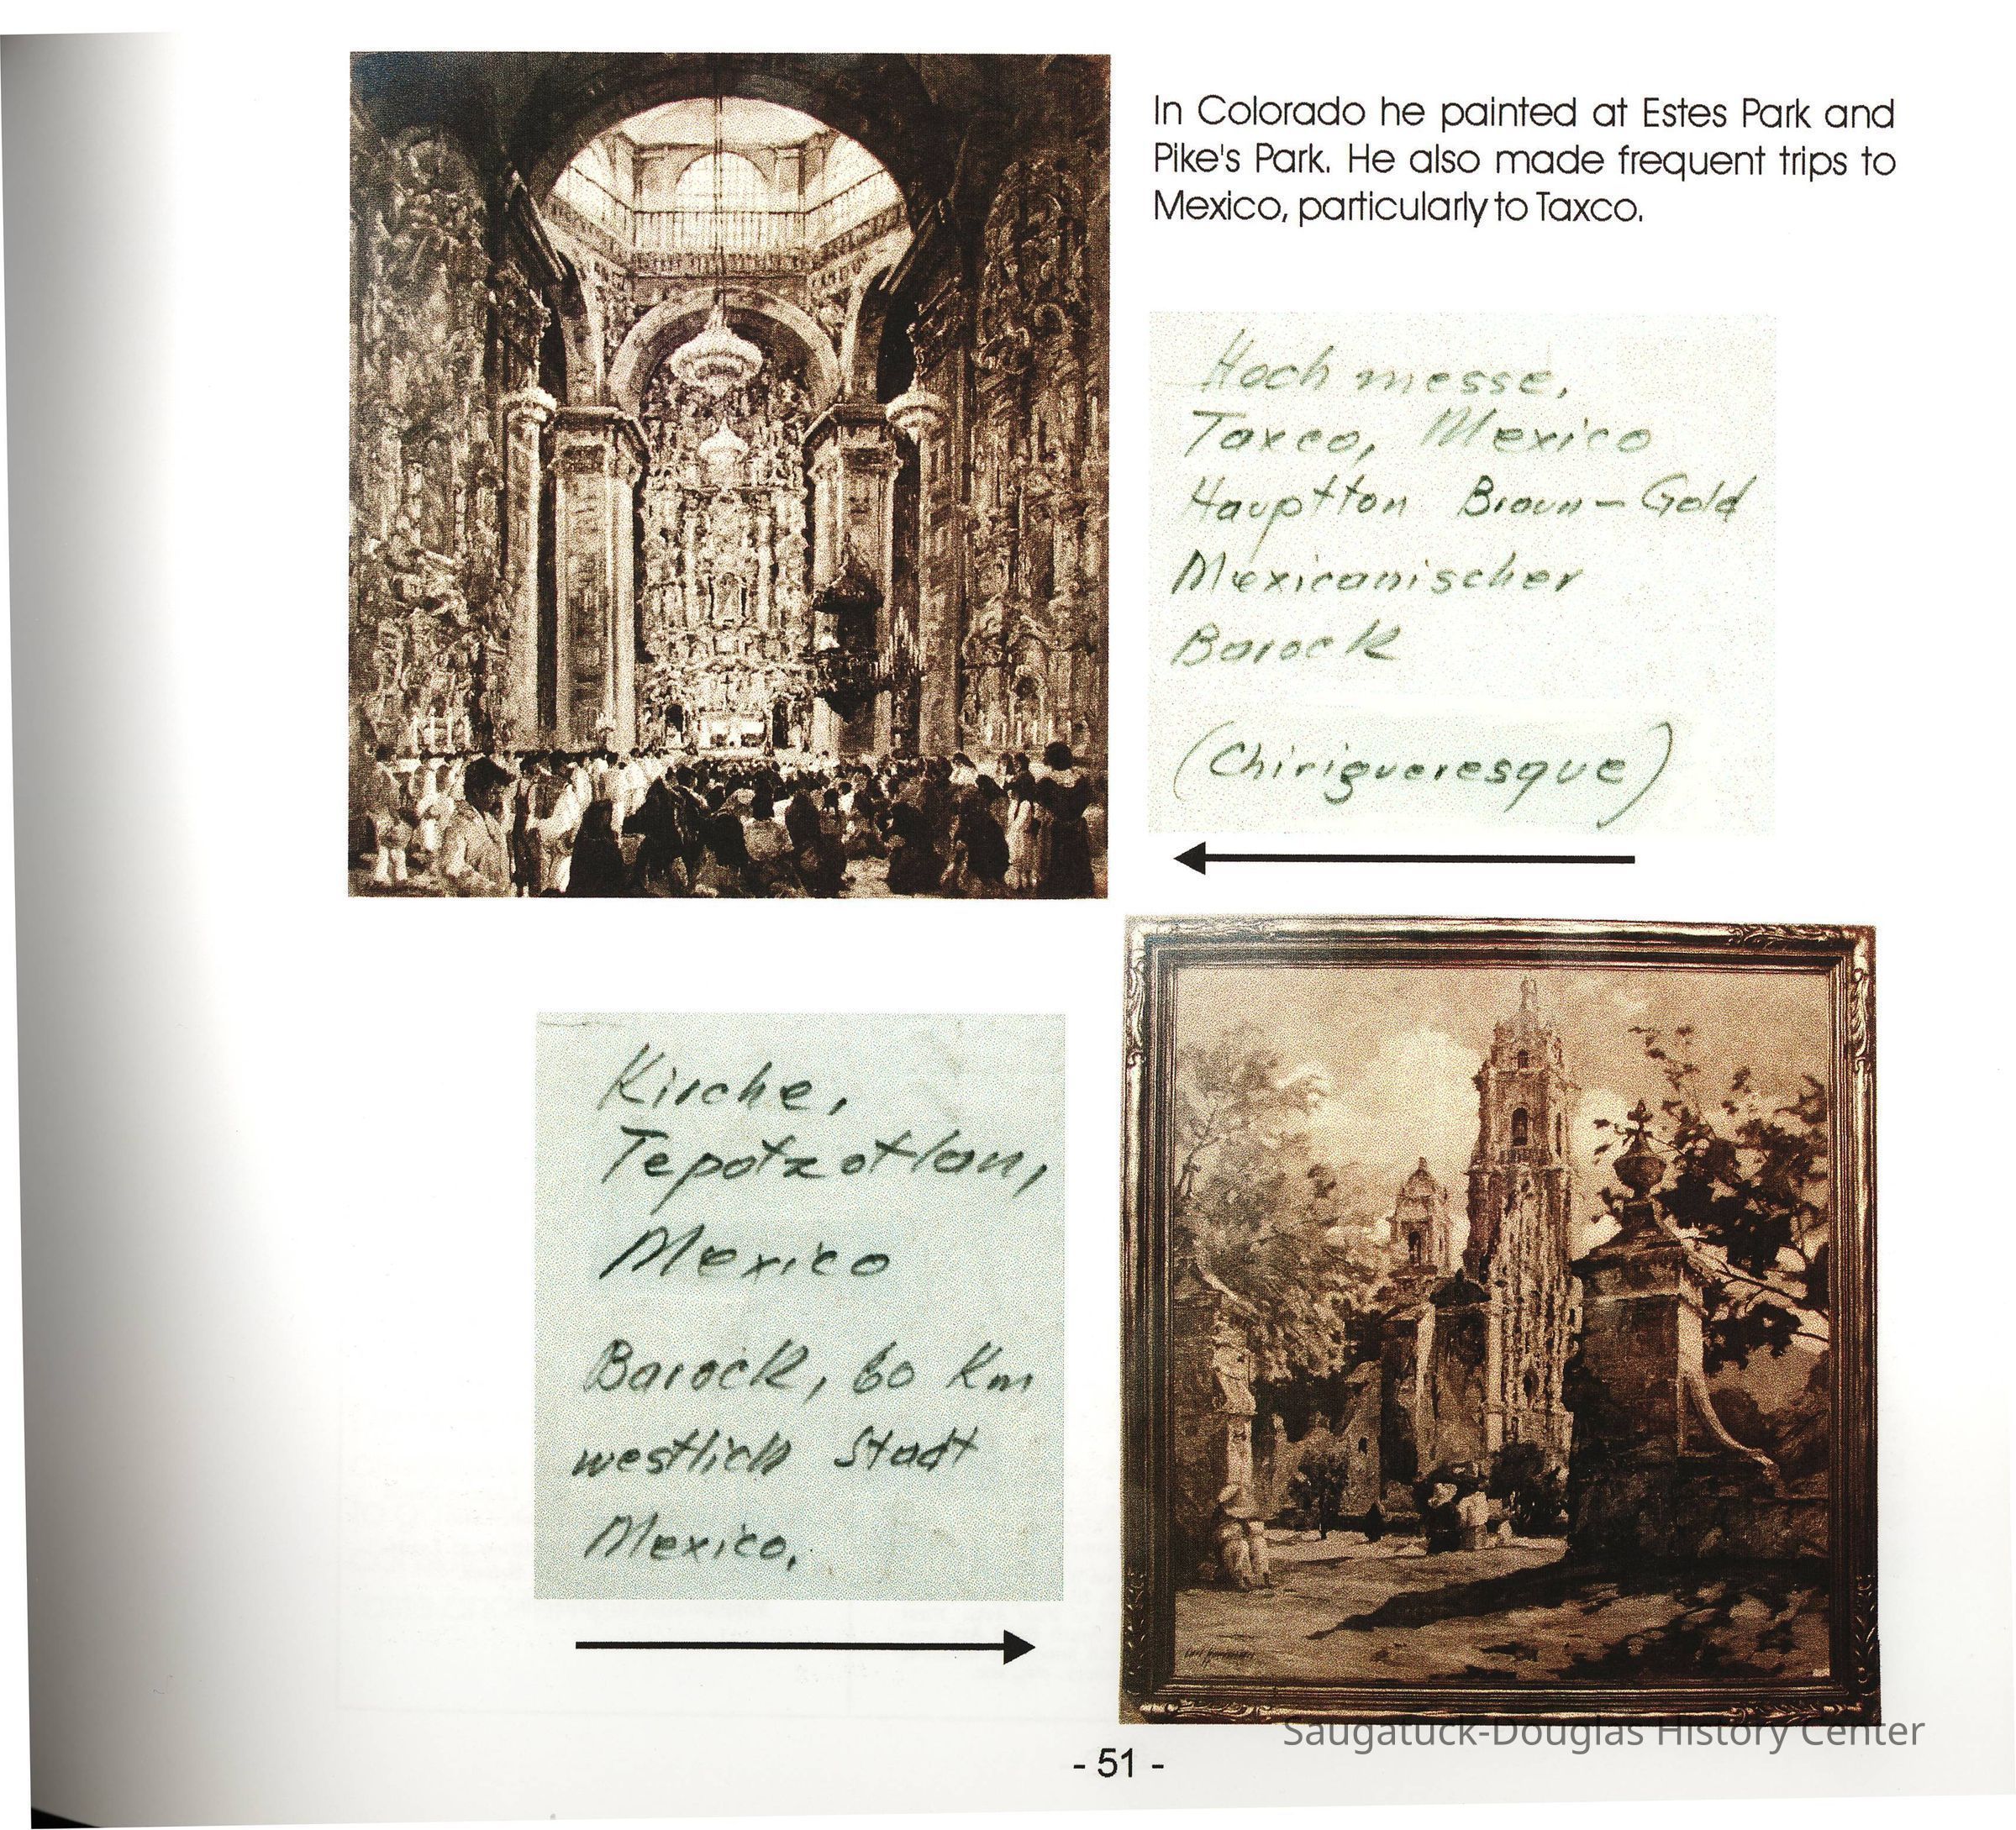 In Colorado he painted at Estes Park and
Pike's Park. He also made frequent trips to
Mexico, particularly to Taxco.
Hochmesse,
Taxco, Mexico
Hauptton Braun-Gold
Mexicanischer
Barock
(Chirigueresque)
Kirche,
Tepotzotlan,
Mexico
Barock, 60 Km
westlich Stadt
Mexico.
Saugatuck-Douglas History Center
- 51 -